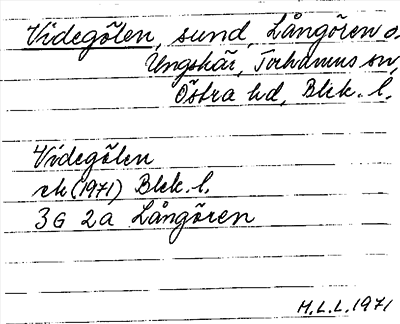 Videgölen, sund, Långören o.
Ungskär, Torhamns sn,
Östra hd, Blek. l.
Videgölen
ek (1971) Blek. l.
3G 2a Långören
M.L.L. 1971